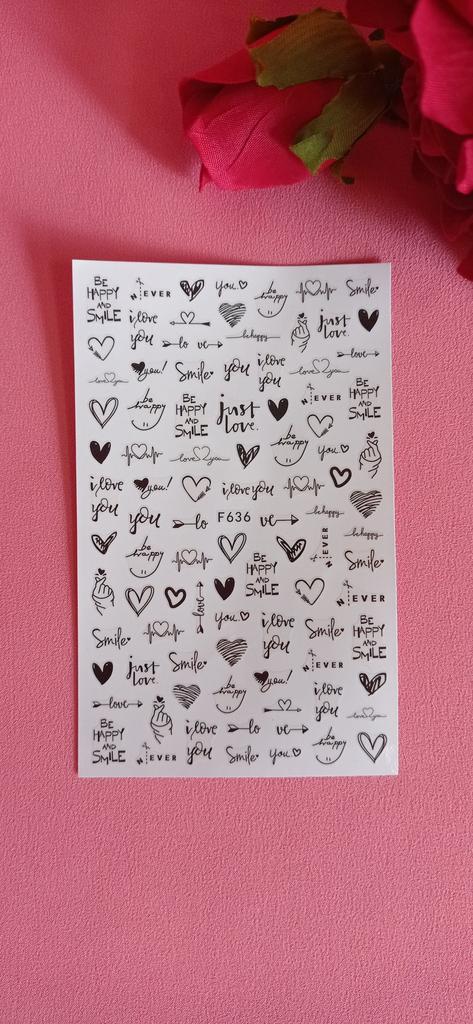 BE HAPPY AND SMILE
NEVER
you.
be happy
Smile
i love you
just love.
lo ve
be happy
love
love you
you!
Smile
you
i love you
love you
be happy
BE HAPPY AND SMILE
just love.
NEVER
BE HAPPY AND SMILE
love you
be happy
you.
i love you
you!
you
i love you
be happy
lo F636 ve
be happy
BE HAPPY AND SMILE
NEVER
be happy
Smile
love
NEVER
Smile
you.
i love you
Smile
BE HAPPY AND SMILE
just love.
Smile
NEVER
you!
love
be happy
i love you
love you
BE HAPPY AND SMILE
NEVER
i love you
lo ve
Smile
you
be happy